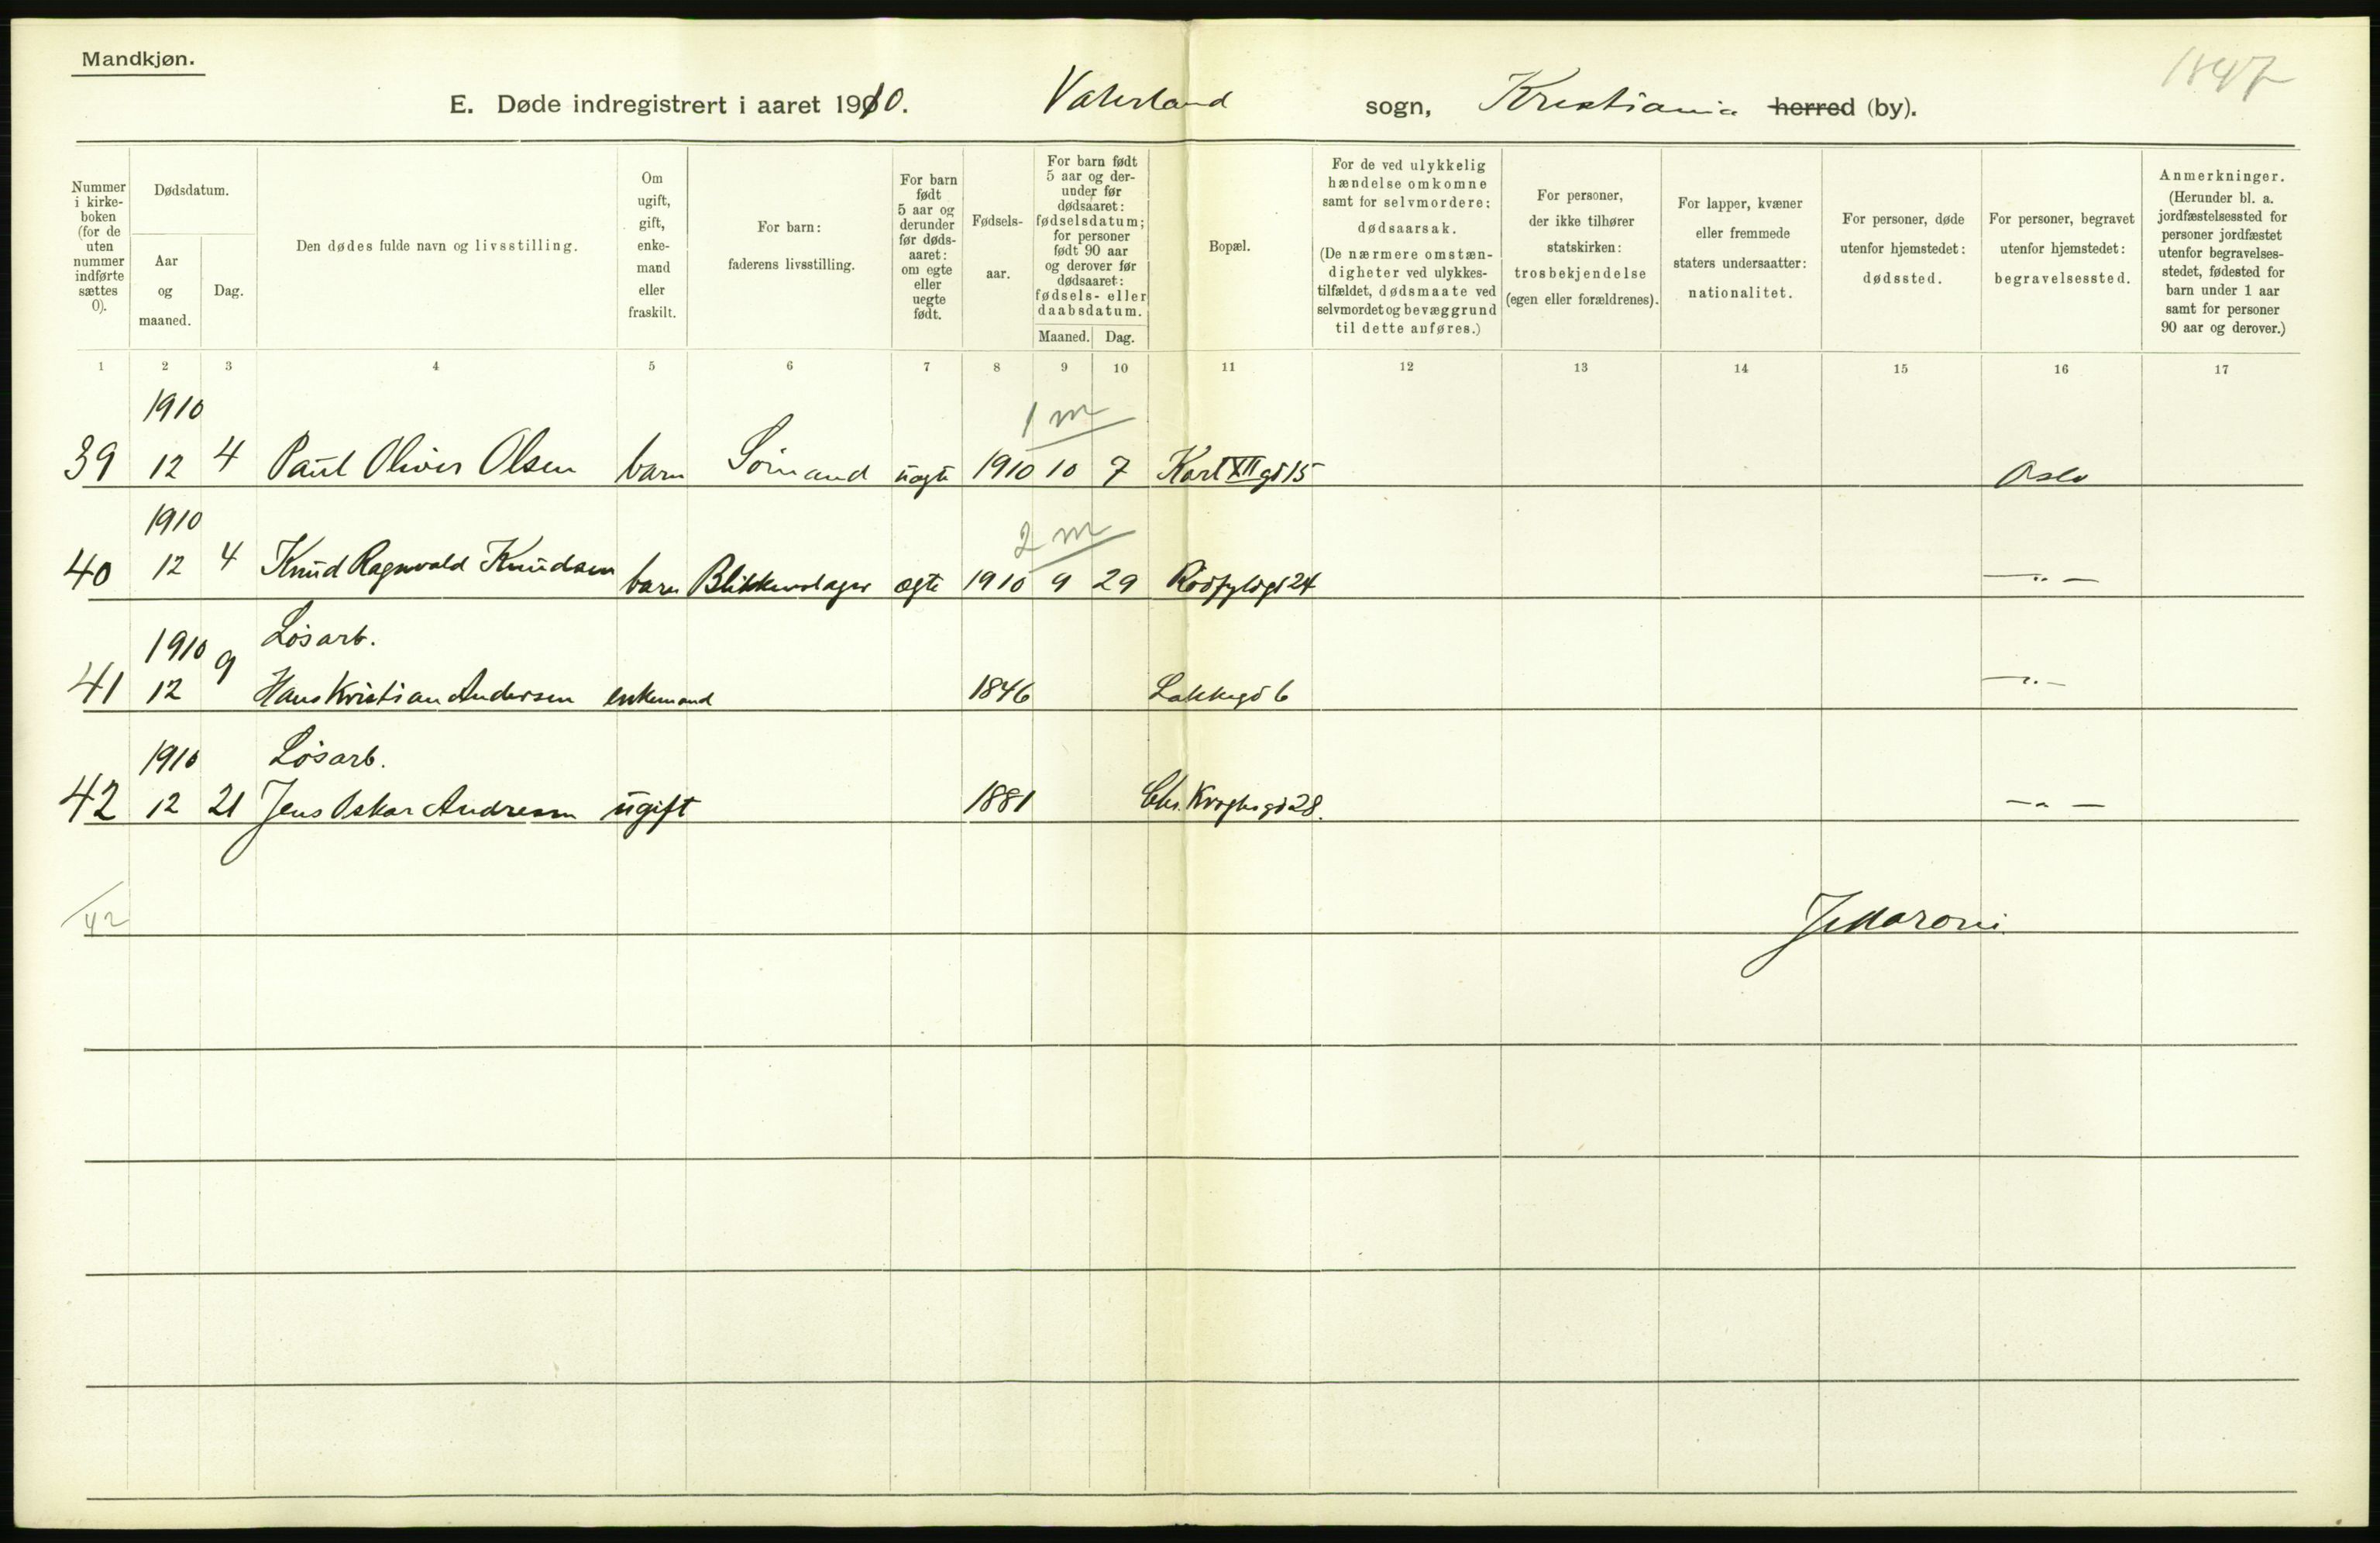 Mandkjøn.
1847
E. Døde indregistrert i aaret 1910. Vaterland sogn, Kristiania herred (by).
Nummer i kirkeboken (for de uten nummer indførte sættes 0).
Dødsdatum.
Aar og maaned.
Dag.
Den dødes fulde navn og livsstilling.
Om ugift, gift, enkemand eller fraskilt.
For barn: faderens livsstilling.
For barn født 5 aar og derunder før dødsaaret: om egte eller uegte født.
Fødselsaar.
For barn født 5 aar og derunder før dødsaaret: fødselsdatum; for personer født 90 aar og derover før dødsaaret: fødsels- eller daabsdatum.
Maaned. Dag.
Bopæl.
For de ved ulykkelig hændelse omkomne samt for selvmordere: dødsaarsak. (De nærmere omstændigheter ved ulykkestilfældet, dødsmaate ved selvmordet og bevæggrund til dette anføres.)
For personer, der ikke tilhører statskirken: trosbekjendelse (egen eller forældrenes).
For lapper, kvæner eller fremmede staters undersaatter: nationalitet.
For personer, døde utenfor hjemstedet: dødssted.
For personer, begravet utenfor hjemstedet: begravelsessted.
Anmerkninger. (Herunder bl. a. jordfæstelsessted for personer jordfæstet utenfor begravelsesstedet, fødested for barn under 1 aar samt for personer 90 aar og derover.)
1 2 3 4 5 6 7 8 9 10 11 12 13 14 15 16 17
1910 1 m
39 12 4 Paul Oliver Olsen barn Sømand uægte 1910 10 7 Karl XII gd 15 Oslo
1910 2 m
40 12 4 Knud Ragnvald Knudsen barn Blikkenslager ægte 1910 9 29 Rødfyldgd 24 — " —
1910 Løsarb.
41 12 9 Hans Kristian Andersen enkemand 1846 Lakkegd 6 — " —
1910 Løsarb.
42 12 21 Jens Oskar Andresen ugift 1881 Chr. Kroghsgd 28. — " —
42